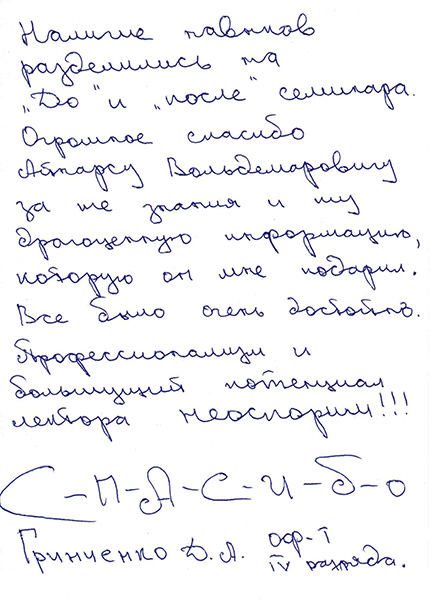 Наличие навыков
разделились на
„До" и „после" семинара.
Огромное спасибо
Айварсу Вольдемаровичу
за те знания и ту
драгоценную информацию,
которую он мне подарил.
Все было очень достойно.
Профессионализм и
большущий потенциал
лектора неоспорим!!!
С-П-А-С-И-Б-О
Гринченко Д.А. оф-т
IV разряда.